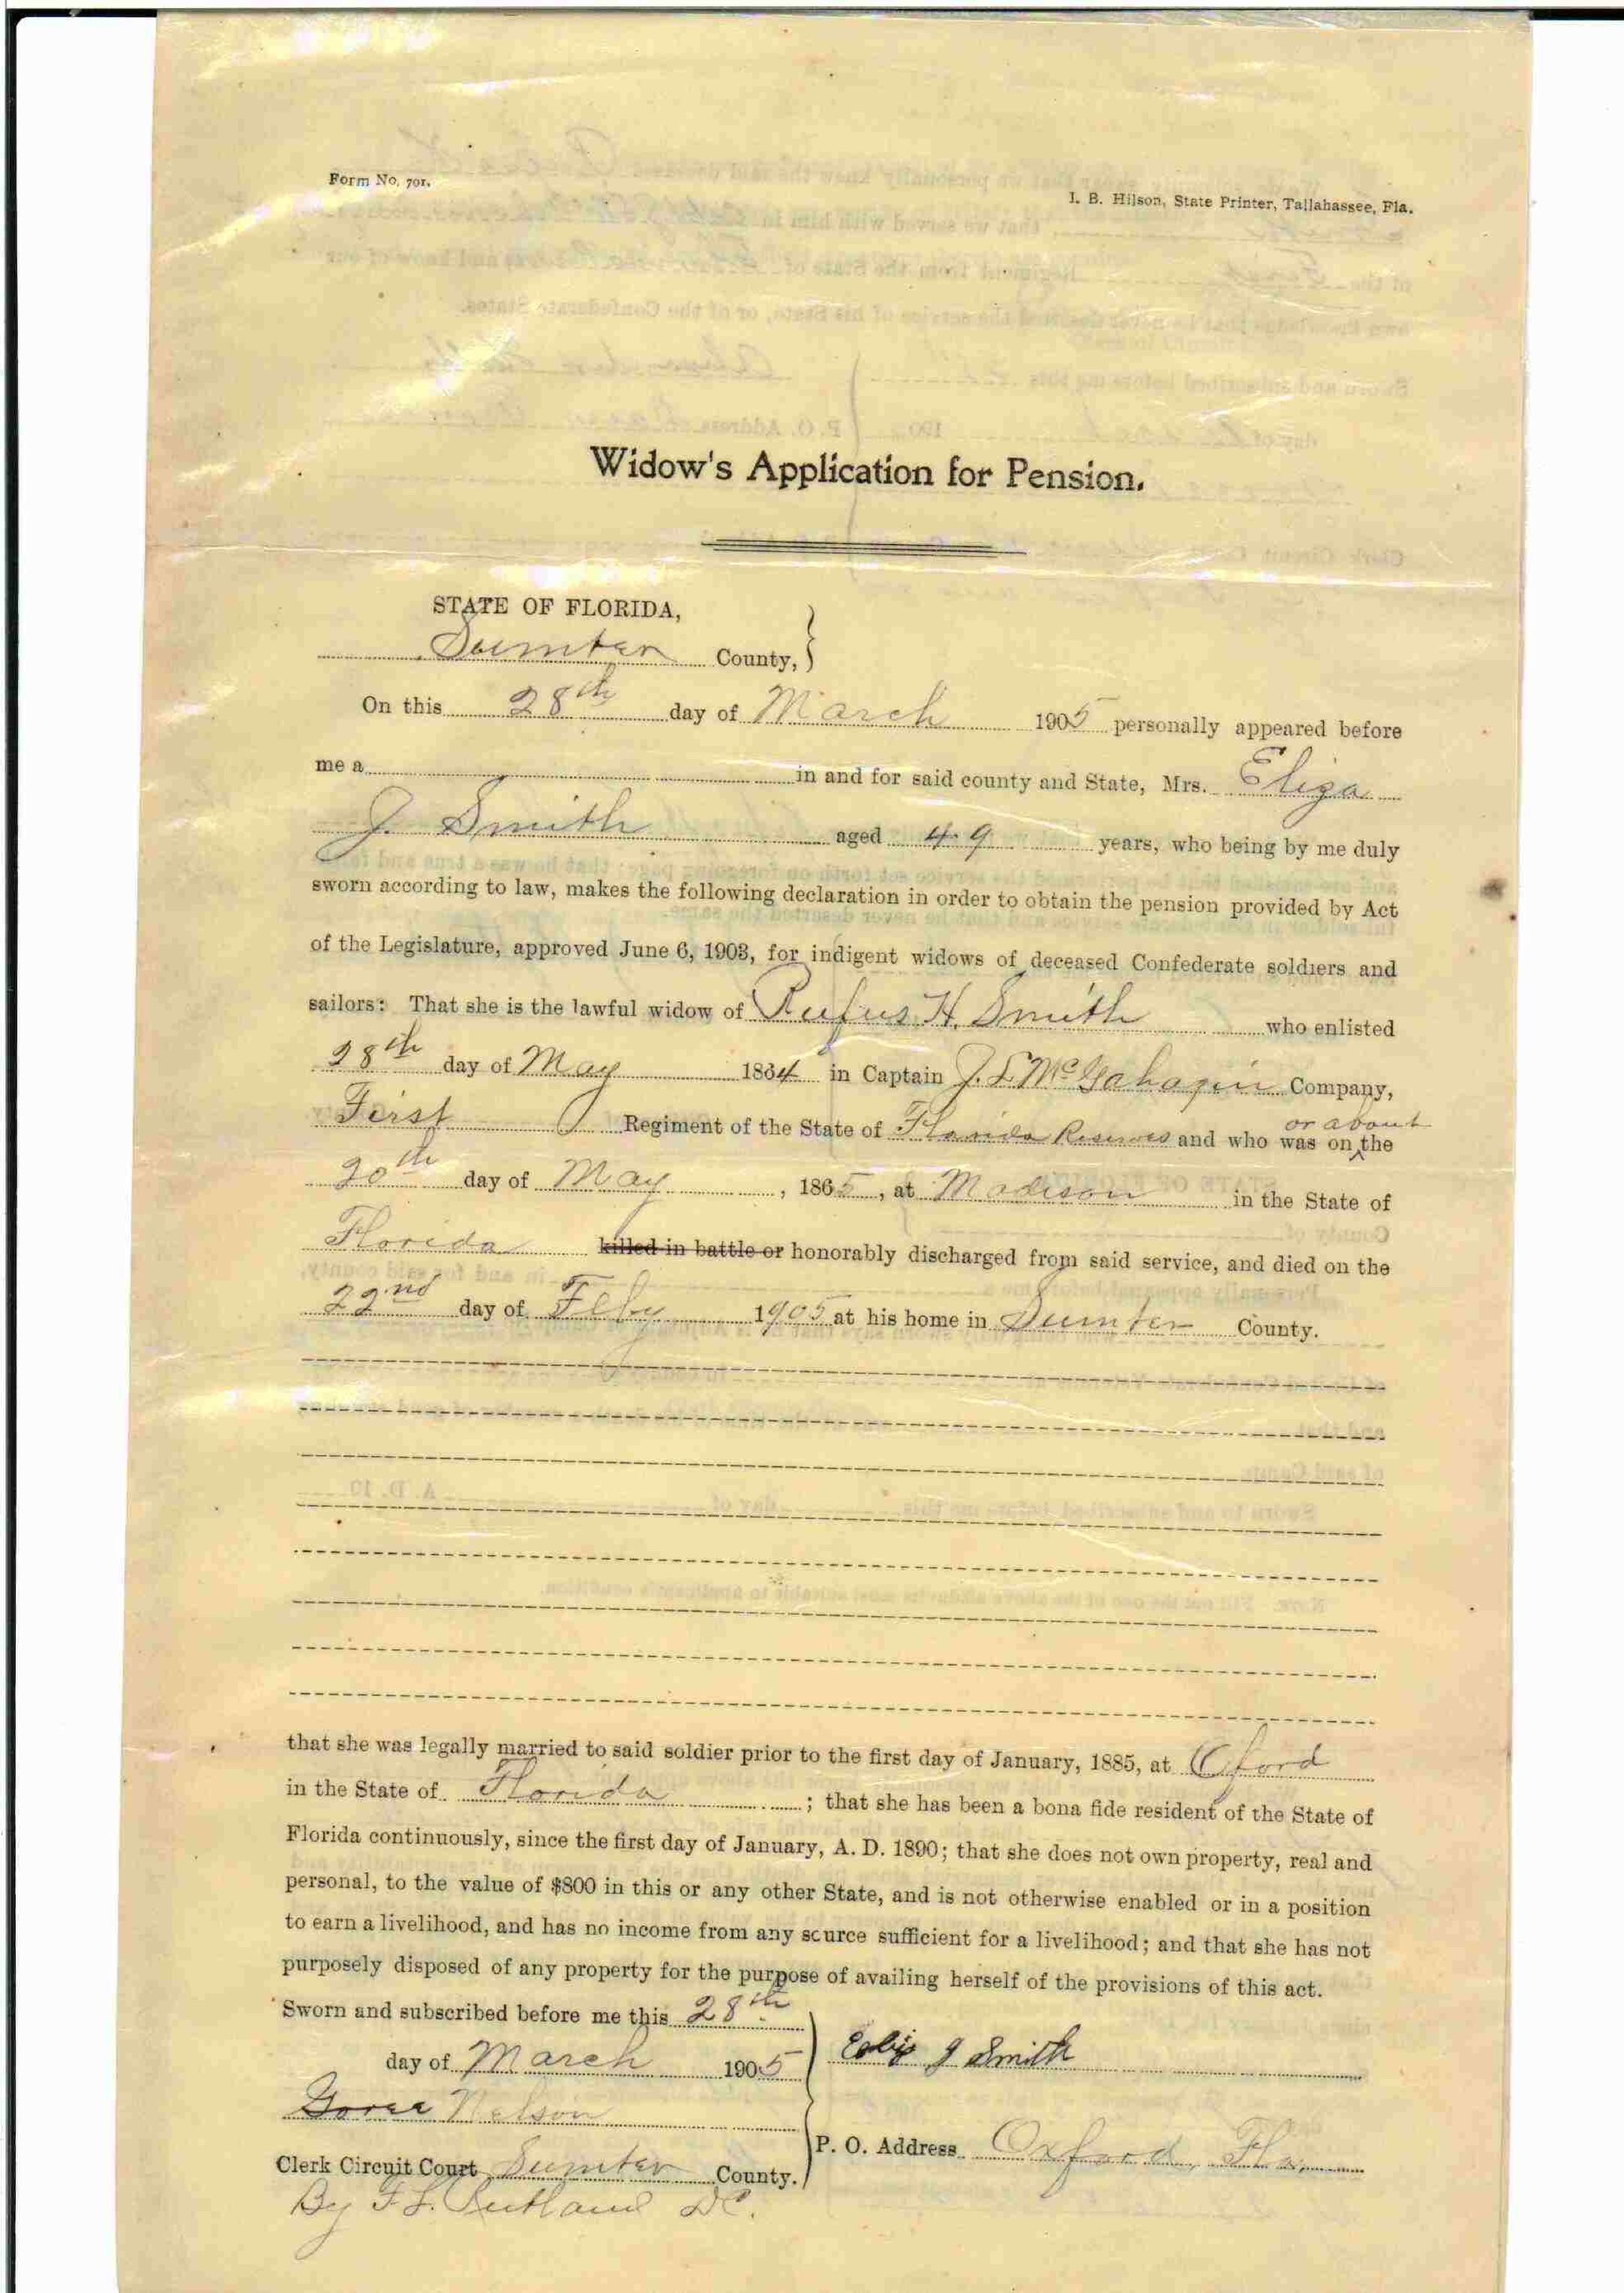 Form No. 701.
I. B. Hilson, State Printer, Tallahassee, Fla.
Widow's Application for Pension.
STATE OF FLORIDA,
Sumter County,
On this 28th day of March 1905 personally appeared before
me a in and for said county and State, Mrs. Eliza
J. Smith aged 49 years, who being by me duly
sworn according to law, makes the following declaration in order to obtain the pension provided by Act
of the Legislature, approved June 6, 1903, for indigent widows of deceased Confederate soldiers and
sailors: That she is the lawful widow of Rufus H. Smith who enlisted
28th day of May 1864 in Captain J. L McGahagin Company,
First Regiment of the State of Florida Reserves and who was on or about the
20th day of May, 1865, at Madison in the State of
Florida killed in battle or honorably discharged from said service, and died on the
22nd day of Feby 1905 at his home in Sumter County.
that she was legally married to said soldier prior to the first day of January, 1885, at Oxford
in the State of Florida; that she has been a bona fide resident of the State of
Florida continuously, since the first day of January, A. D. 1890; that she does not own property, real and
personal, to the value of $800 in this or any other State, and is not otherwise enabled or in a position
to earn a livelihood, and has no income from any scurce sufficient for a livelihood; and that she has not
purposely disposed of any property for the purpose of availing herself of the provisions of this act.
Sworn and subscribed before me this 28th
day of March 1905
J Smith
Nelson
P. O. Address Oxford, Fla,
Clerk Circuit Court Sumter County.
By Rutland D.C.